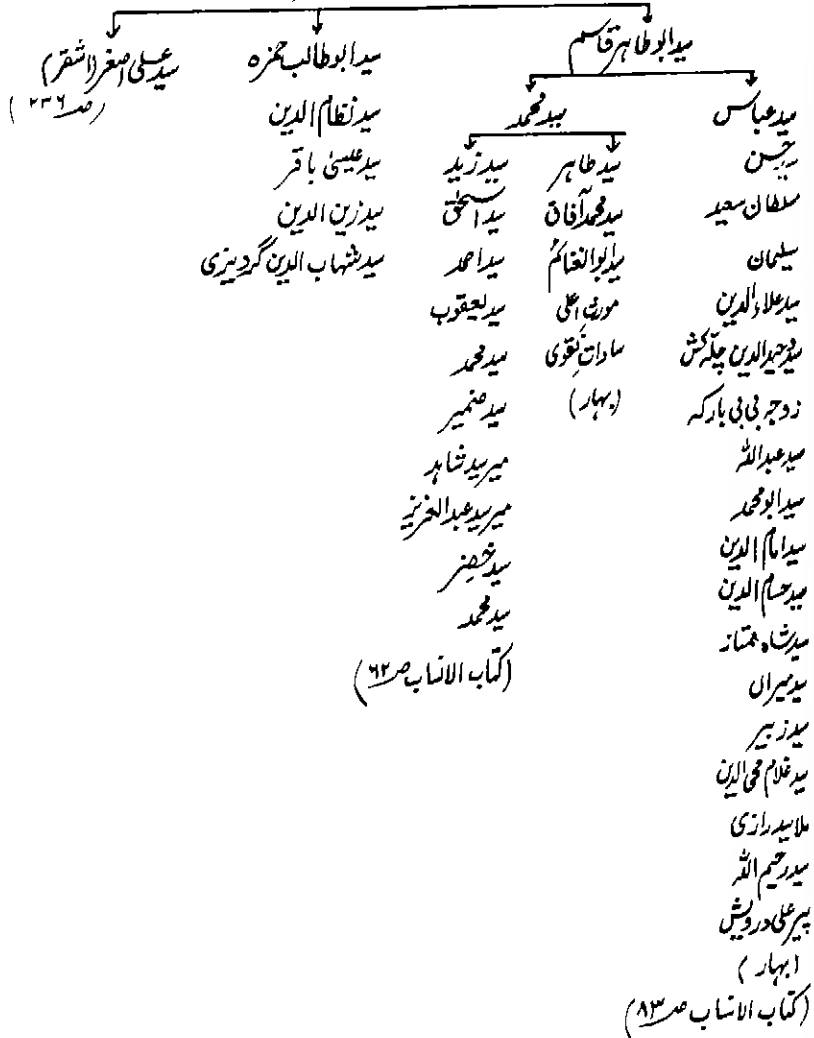 سید ابو طاہر قاسم
سید ابوطالب حمزہ
سید علی اصغر (اشقر)
(صہ ۲۳۶)
سید عباس
حسن
سلطان سعید
سلیمان
سید علاءالدین
سید وحیدالدین چلہ کش
زوجہ بی بی بارکہ
سید عبداللہ
سید ابو محمد
سید امام الدین
سید حسام الدین
سید شاہ ممتاز
سید میراں
سید زبیر
سید غلام محی الدین
ملا سید رازی
سید رحیم اللہ
پیر علی درویش
(بہار)
(کتاب الانساب صہ ۸۳)
سید محمد
سید طاہر
سید محمد آفاق
سید ابوالغنائم
مورث اعلی
سادات نقوی
(بہار)
سید زید
سید اسحٰق
سید احمد
سید یعقوب
سید محمد
سید ضمیر
میر سید شاہد
میر سید عبدالعزیز
سید خضر
سید محمد
(کتاب الانساب صہ ۶۲)
سید نظام الدین
سید عیسیٰ باقر
سید زین الدین
سید شہاب الدین گردیزی